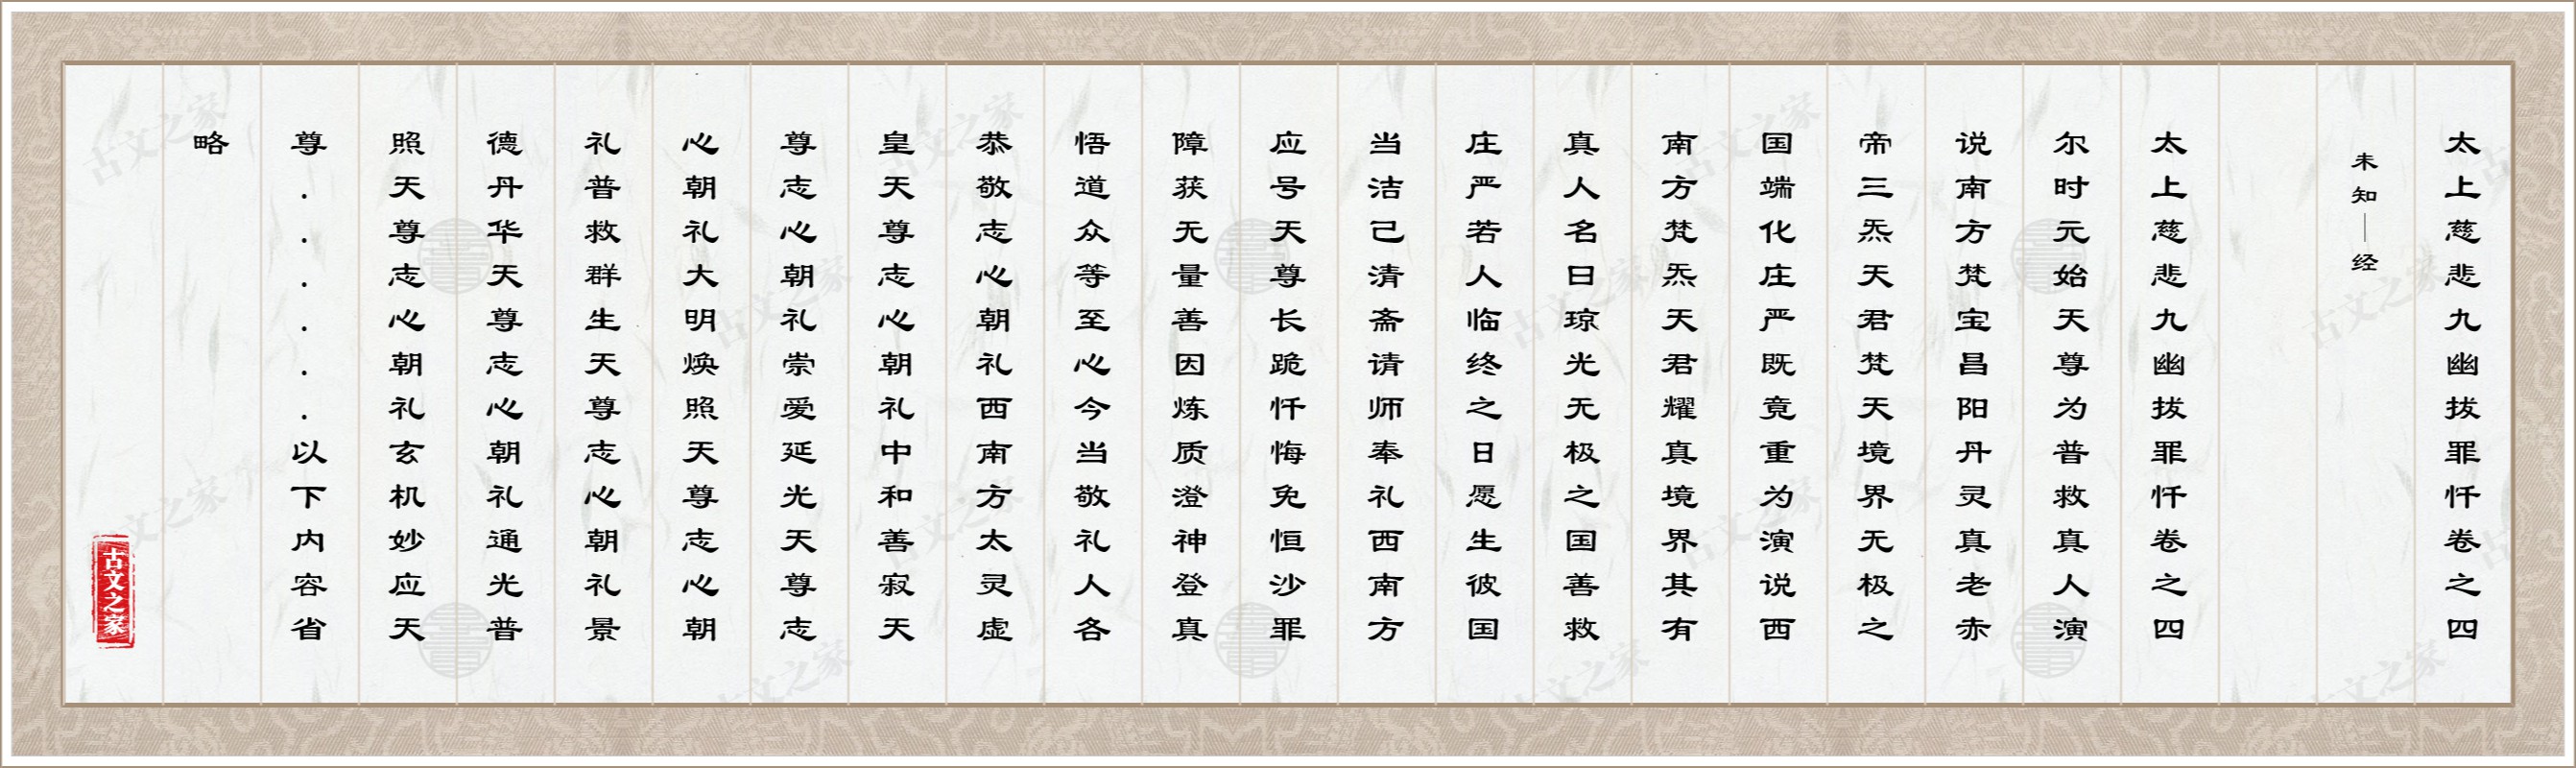 太上慈悲九幽拔罪忏卷之四
未知｜经
太上慈悲九幽拔罪忏卷之四
尔时元始天尊为普救真人演
说南方梵宝昌阳丹灵真老赤
帝三炁天君梵天境界无极之
南方梵炁天君耀真境界其有
国端化庄严既竟重为演说西
真人名曰琼光无极之国善救
庄严若人临终之日愿生彼国
当洁己清斋请师奉礼西南方
应号天尊长跪忏悔免恒沙罪
障获无量善因炼质澄神登真
悟道众等至心今当敬礼人各
恭敬志心朝礼西南方太灵虚
皇天尊志心朝礼中和善寂天
尊志心朝礼崇爱延光天尊志
心朝礼大明焕照天尊志心朝
礼普救群生天尊志心朝礼景
德丹华天尊志心朝礼通光普
照天尊志心朝礼玄机妙应天
尊......以下内容省
略
古文之家